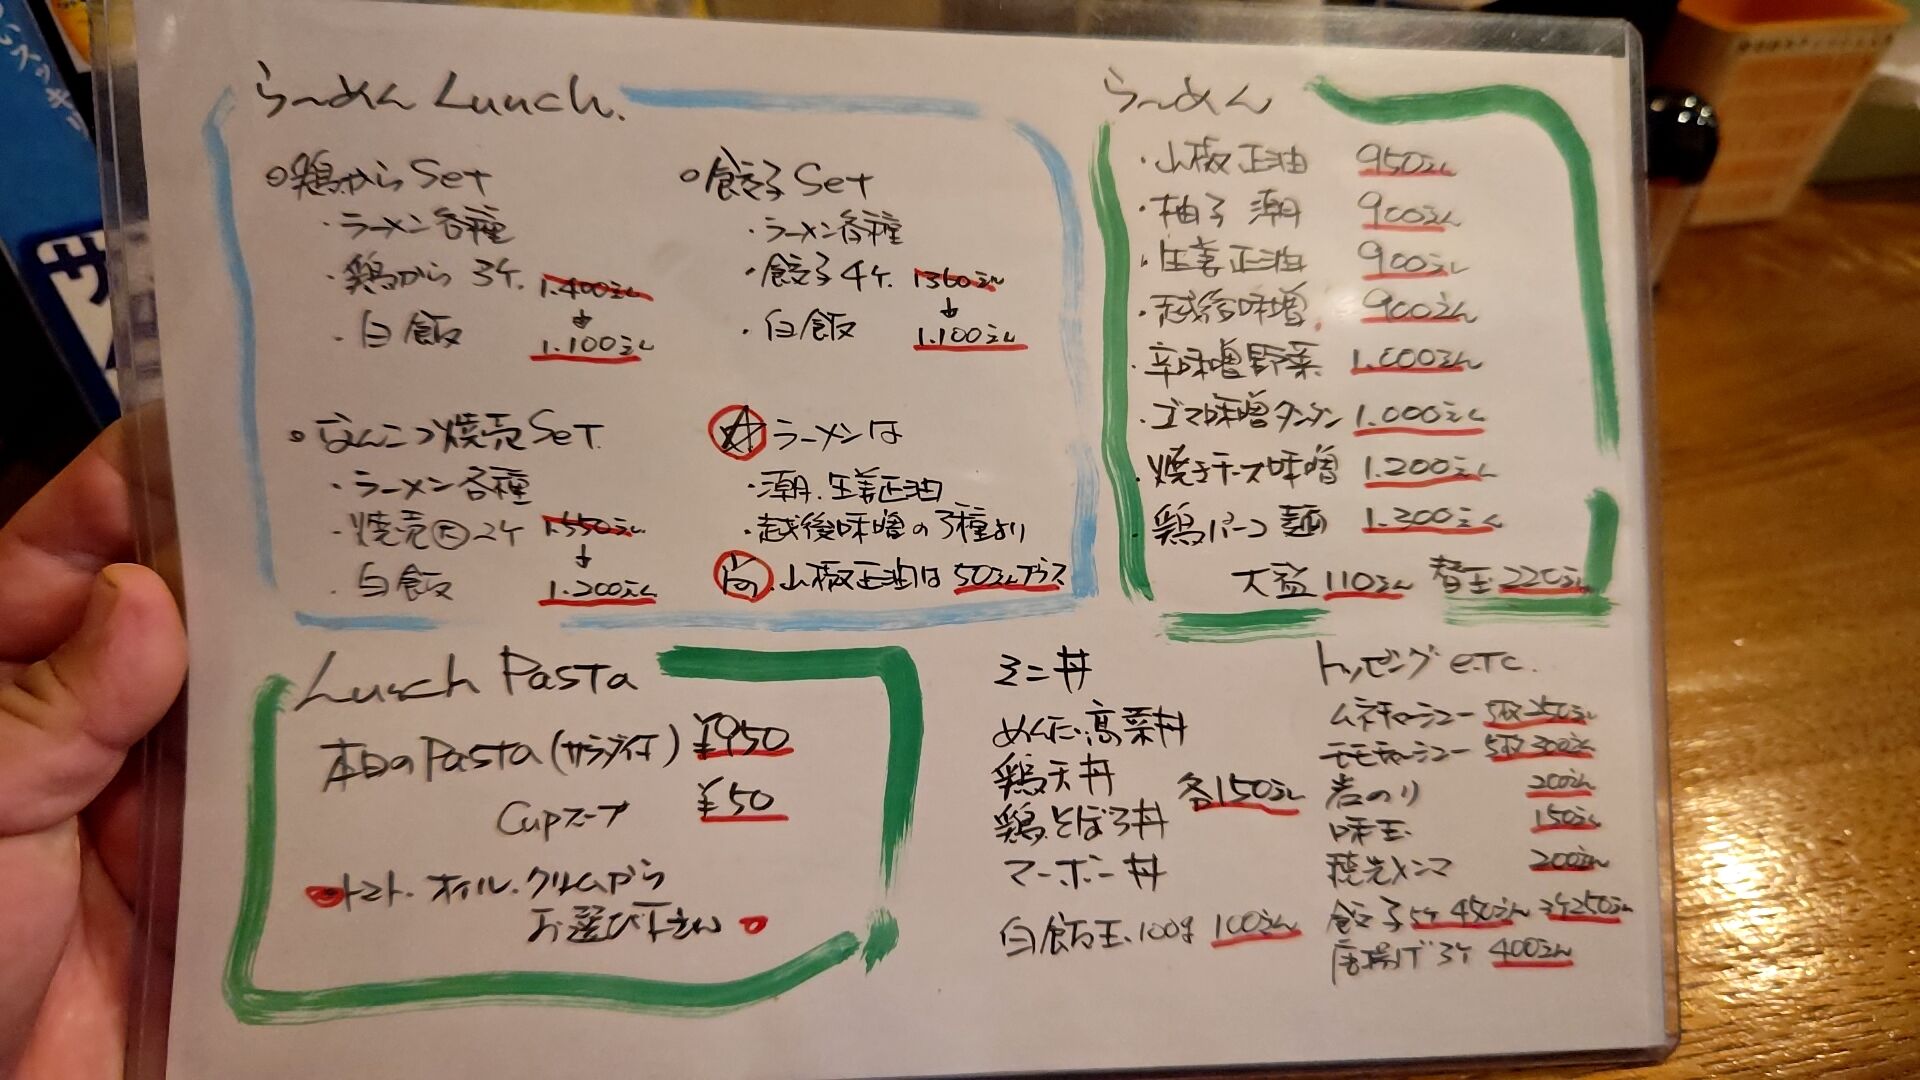 らーめん Lunch.
○鶏から Set
・ラーメン各種
・鶏から 3ケ 1.400えん
↓
・白飯 1.100えん
○餃子 Set
・ラーメン各種
・餃子4ケ 1360えん
↓
・白飯 1.100えん
○なんこつ焼売 Set
・ラーメン各種
・焼売大2ケ 1.550えん
↓
・白飯 1.200えん
ラーメンは
・潮.生姜正油
・越後味噌の3種より
尚.山椒正油は 50えんプラス
らーめん
・山椒正油 950えん
・柚子 潮 900えん
・生姜正油 900えん
・越後味噌 900えん
・辛味噌野菜 1.000えん
・ゴマ味噌タンタン 1.000えん
・焼きチーズ味噌 1.200えん
・鶏パーコー麺 1.300えん
大盛 110えん 替玉 220えん
Lunch Pasta
本日のPasta(サラダ付) ¥950
Cupスープ ¥50
トマト.オイル.クリームから
お選び下さい
ミニ丼
めんたい高菜丼
鶏天丼
鶏そぼろ丼
マーボー丼
各150えん
白飯 100g 100えん
トッピング etc.
ムネチャーシュー 5枚250えん
モモチャーシュー 5枚300えん
岩のり 200えん
味玉 150えん
穂先メンマ 200えん
餃子5ケ 450えん 3ケ250えん
唐揚げ3ケ 400えん